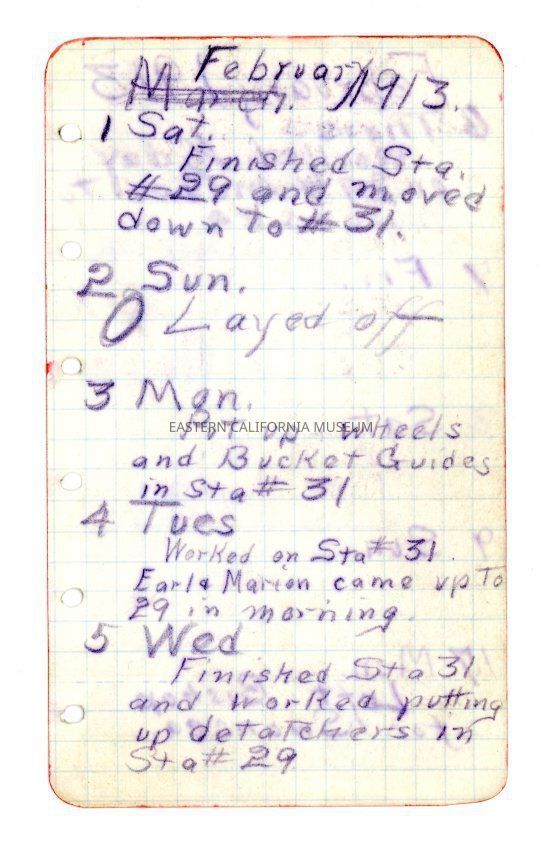 February
March. 1913.
1 Sat.
Finished Sta.
#29 and moved
down To #31.
2 Sun.
0 Layed off
3 Mon.
EASTERN CALIFORNIA MUSEUM
Put up wheels
and Bucket Guides
in Sta # 31
4 Tues
Worked on Sta # 31.
Earl & Marion came up To
29 in morning.
5 Wed
Finished Sta 31
and worked putting
up detatchers in
Sta # 29